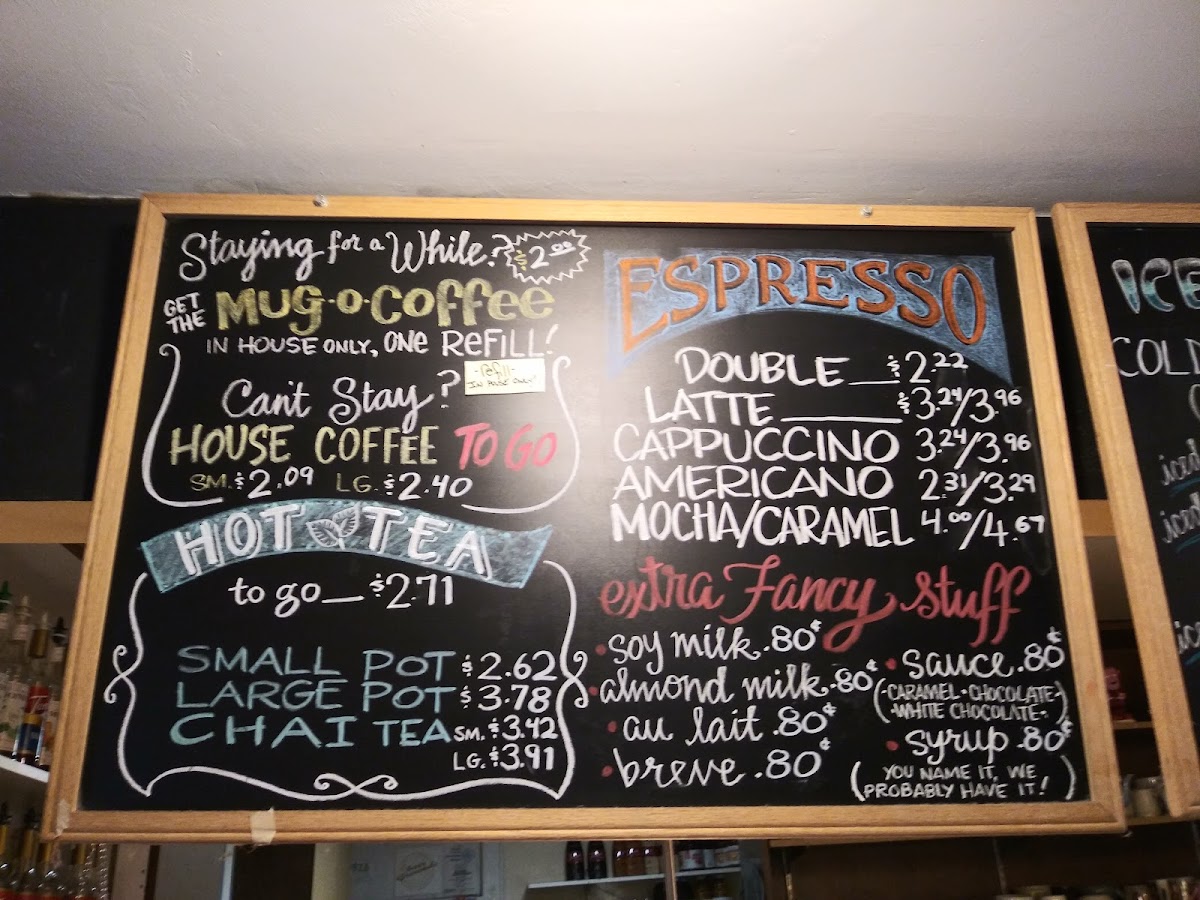 Staying for a While? $2.00
GET THE MUG-O-COFFEE
IN HOUSE ONLY, ONE REFILL!
-Refill-
IN HOUSE ONLY!
Can't Stay?
HOUSE COFFEE TO GO
SM. $2.09 LG. $2.40
HOT TEA
to go__ $2.71
SMALL POT $2.62
LARGE POT $3.78
CHAI TEA SM. $3.42
LG. $3.91
ESPRESSO
DOUBLE __ $2.22
LATTE ____ $3.24/3.96
CAPPUCCINO 3.24/3.96
AMERICANO 2.31/3.29
MOCHA/CARAMEL 4.00/4.67
extra Fancy stuff
• soy milk .80¢
• almond milk .80¢
• au lait .80¢
• breve .80¢
• sauce .80¢
(-CARAMEL • CHOCOLATE-
-WHITE CHOCOLATE-)
• syrup .80¢
(YOU NAME IT, WE
PROBABLY HAVE IT!)
ICE
COLD
iced